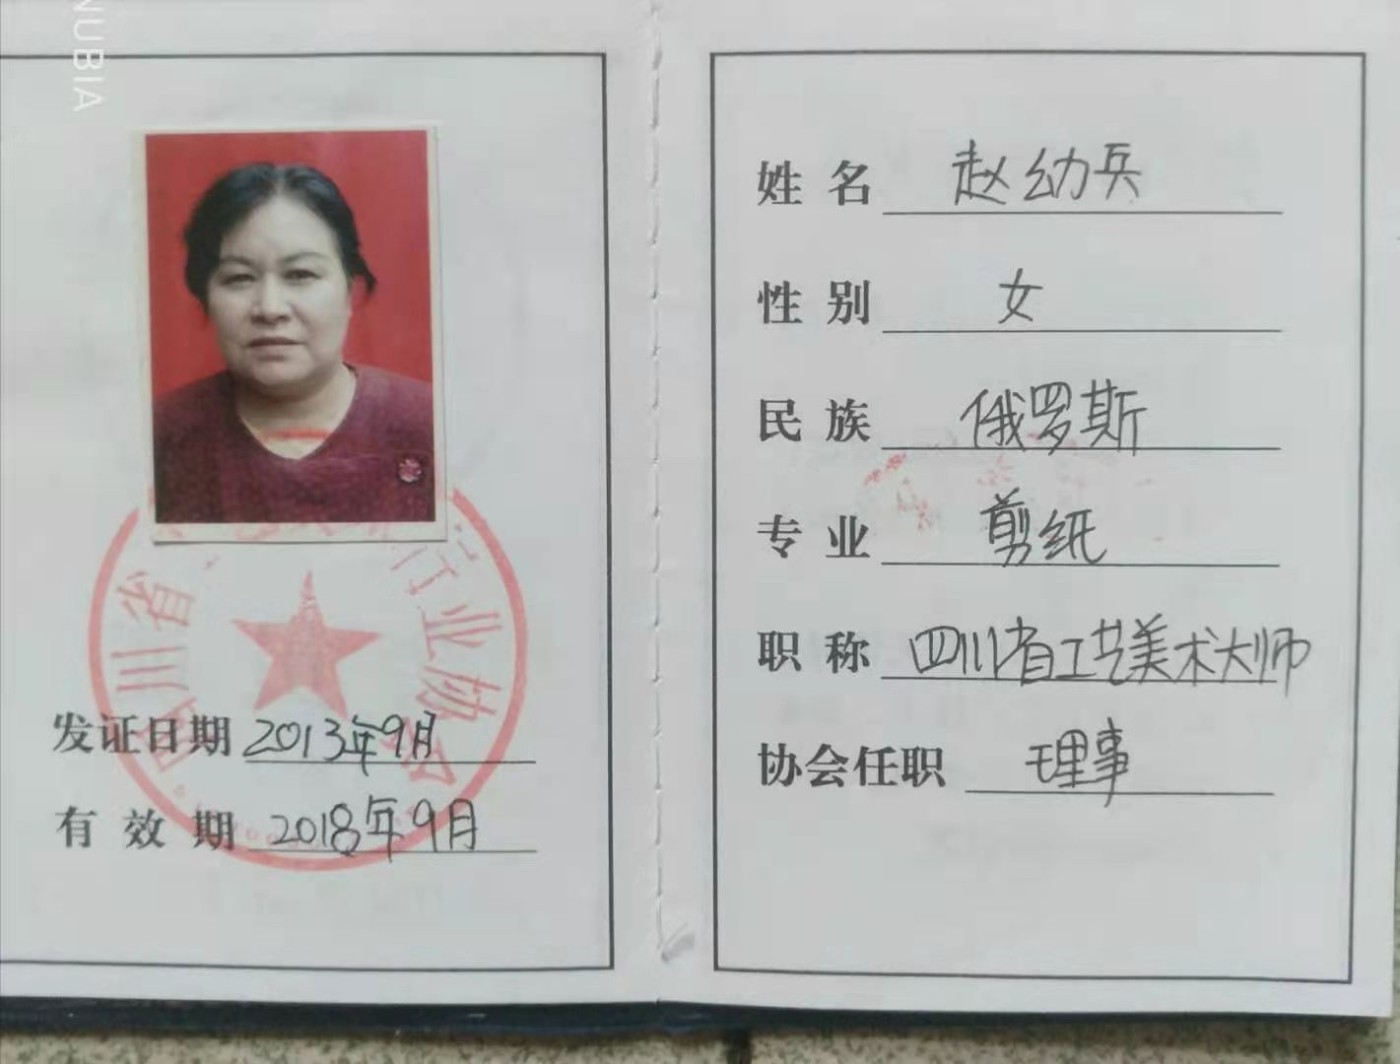 NUBIA
四川省
行业协会
发证日期 2013年9月
有效期 2018年9月
姓名 赵幼兵
性别 女
民族 俄罗斯
专业 剪纸
职称 四川省工艺美术大师
协会任职 理事